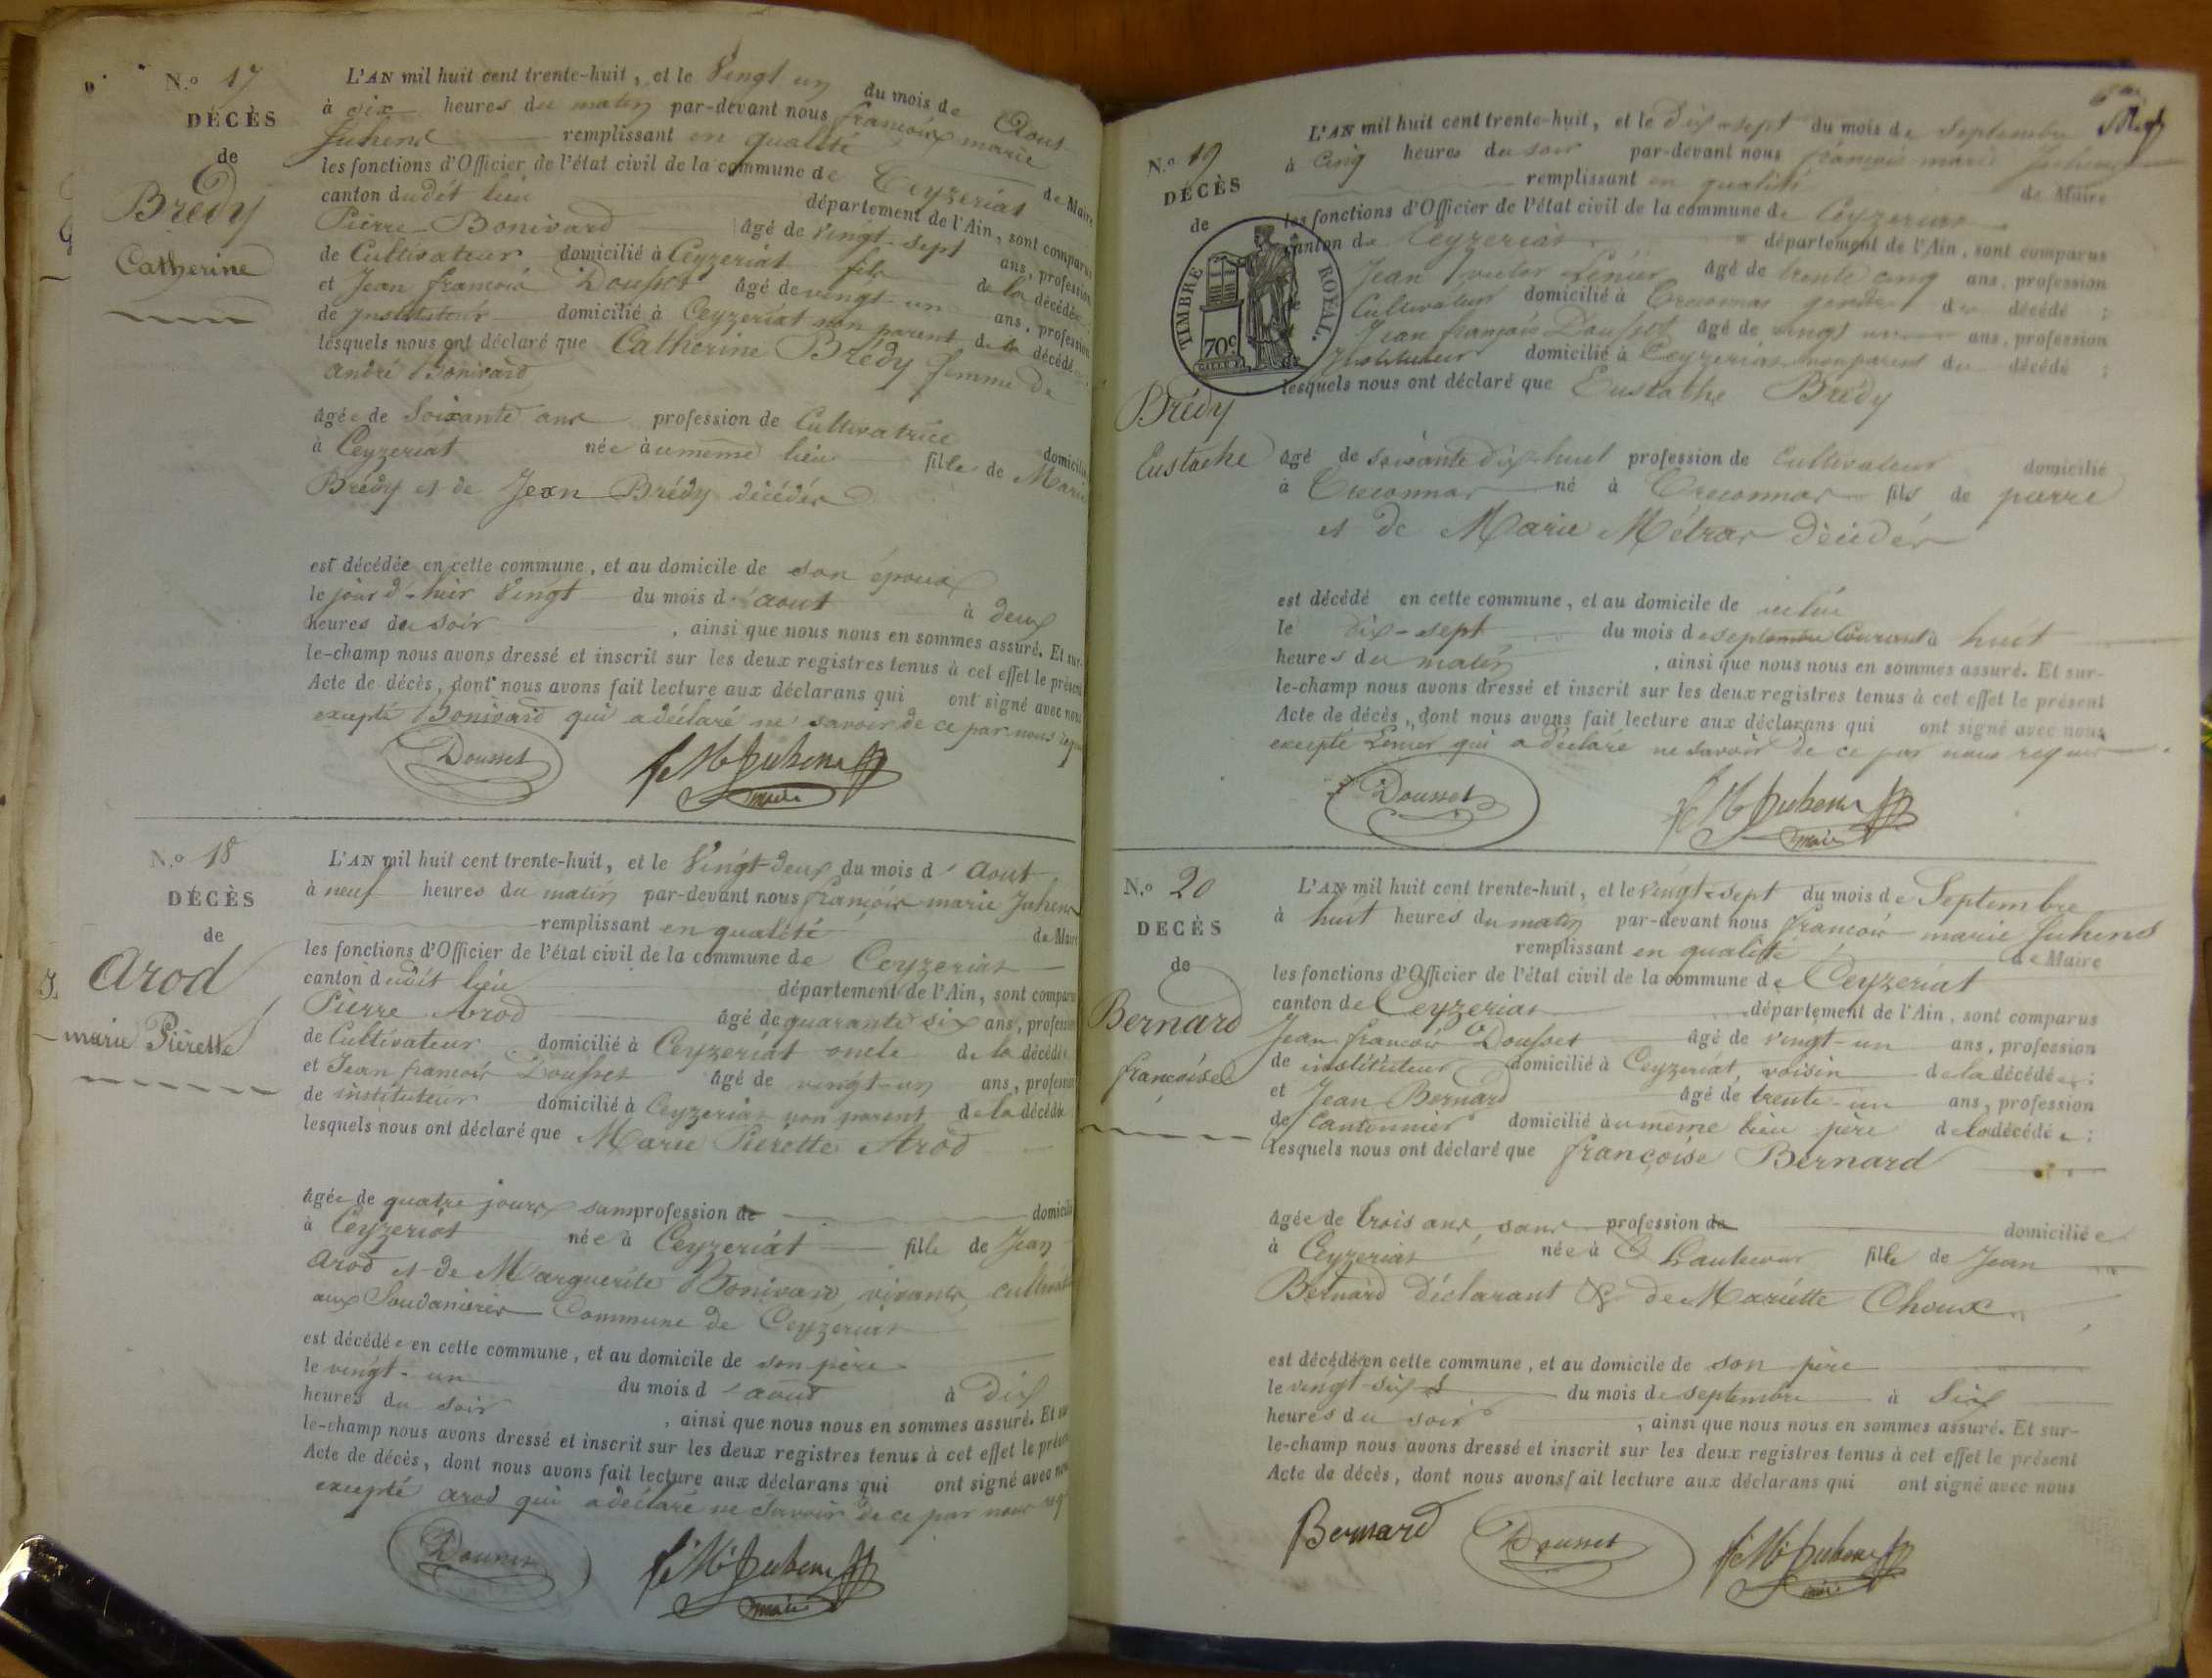 N.o 17
DÉCÈS
de
Brédy
Catherine
L'AN mil huit cent trente-huit, et le Vingt un du mois de Aout
à six heures du matin par-devant nous françois marie
Juhene remplissant en qualité de Maire
les fonctions d'Officier de l'état civil de la commune de Ceyzeriat
canton dudit lieu département de l'Ain, sont comparus
Pierre Bonivard âgé de vingt-sept ans, profession
de Cultivateur domicilié à Ceyzeriat fils de la décédée
et Jean françois Dousset âgé de vingt-un ans, profession
de instituteur domicilié à Ceyzeriat non parent de la décédée
lesquels nous ont déclaré que Catherine Brédy femme de
andré Bonivard
âgée de Soixante ans profession de Cultivatrice domicilié
à Ceyzeriat née au même lieu fille de Marie
Brédy et de Jean Brédy décédés
est décédée en cette commune, et au domicile de son époux
le jour d'hier Vingt du mois d'aout à deux
heures du soir, ainsi que nous nous en sommes assuré. Et sur-
le-champ nous avons dressé et inscrit sur les deux registres tenus à cet effet le présent
Acte de décès, dont nous avons fait lecture aux déclarans qui ont signé avec nous
excepté Bonivard qui a déclaré ne savoir de ce par nous requis
Dousset f. M. Juhene
maire
N.o 18
DÉCÈS
de
Arod
marie Pierette
L'AN mil huit cent trente-huit, et le Vingt-deux du mois d'Aout
à neuf heures du matin par-devant nous françois marie Juhene
remplissant en qualité de Maire
les fonctions d'Officier de l'état civil de la commune de Ceyzeriat
canton dudit lieu département de l'Ain, sont comparus
Pierre Arod âgé de quarante six ans, profession
de Cultivateur domicilié à Ceyzeriat oncle de la décédée
et Jean françois Dousset âgé de vingt-un ans, profession
de instituteur domicilié à Ceyzeriat non parent de la décédée
lesquels nous ont déclaré que Marie Pierette Arod
âgée de quatre jours sans profession de domicilié
à Ceyzeriat née à Ceyzeriat fille de Jean
Arod et de Marguerite Bonivard, vivants, cultivateurs
aux Soudanières Commune de Ceyzeriat
est décédée en cette commune, et au domicile de son père
le vingt-un du mois d'aout à dix
heures du soir, ainsi que nous nous en sommes assuré. Et sur-
le-champ nous avons dressé et inscrit sur les deux registres tenus à cet effet le présent
Acte de décès, dont nous avons fait lecture aux déclarans qui ont signé avec nous
excepté arod qui a déclaré ne savoir de ce par nous req
Dousset f. M. Juhene
maire
N.o 19
DÉCÈS
de
TIMBRE ROYAL.
70c
Brédy
Eustache
L'AN mil huit cent trente-huit, et le Dix-sept du mois de Septembre
à Cinq heures du soir par-devant nous françois marie Juhene
remplissant en qualité de Maire
les fonctions d'Officier de l'état civil de la commune de Ceyzeriat
canton de Ceyzeriat département de l'Ain, sont comparus
Jean victor âgé de trente cinq ans, profession
Cultivateur domicilié à gendre du décédé;
Jean françois Dousset âgé de vingt un ans, profession
Instituteur domicilié à Ceyzeriat non parent du décédé;
lesquels nous ont déclaré que Eustache Brédy
âgé de soixante dix-huit profession de Cultivateur domicilié
à né à fils de pierre
et de Marie Métras décédés
est décédé en cette commune, et au domicile de
le dix-sept du mois de septembre Courant à huit
heures du matin, ainsi que nous nous en sommes assuré. Et sur-
le-champ nous avons dressé et inscrit sur les deux registres tenus à cet effet le présent
Acte de décès, dont nous avons fait lecture aux déclarans qui ont signé avec nous
excepté qui a déclaré ne savoir de ce par nous requis
Dousset f. M. Juhene
maire
N.o 20
DÉCÈS
de
Bernard
françoise
L'AN mil huit cent trente-huit, et le vingt-sept du mois de Septembre
à huit heures du matin par-devant nous françois marie Juhene
remplissant en qualité de Maire
les fonctions d'Officier de l'état civil de la commune de Ceyzeriat
canton de Ceyzeriat département de l'Ain, sont comparus
Jean françois Dousset âgé de vingt-un ans, profession
de instituteur domicilié à Ceyzeriat, voisin de la décédée;
et Jean Bernard âgé de trente-un ans, profession
de Cantonnier domicilié au même lieu père de la décédée;
lesquels nous ont déclaré que françoise Bernard
âgée de trois ans, sans profession de domiciliée
à Ceyzeriat née à fille de Jean
Bernard déclarant & de Mariette Choux
est décédée en cette commune, et au domicile de son père
le vingt-six du mois de septembre à Six
heures du soir, ainsi que nous nous en sommes assuré. Et sur-
le-champ nous avons dressé et inscrit sur les deux registres tenus à cet effet le présent
Acte de décès, dont nous avons fait lecture aux déclarans qui ont signé avec nous
Bernard Dousset f. M. Juhene
maire